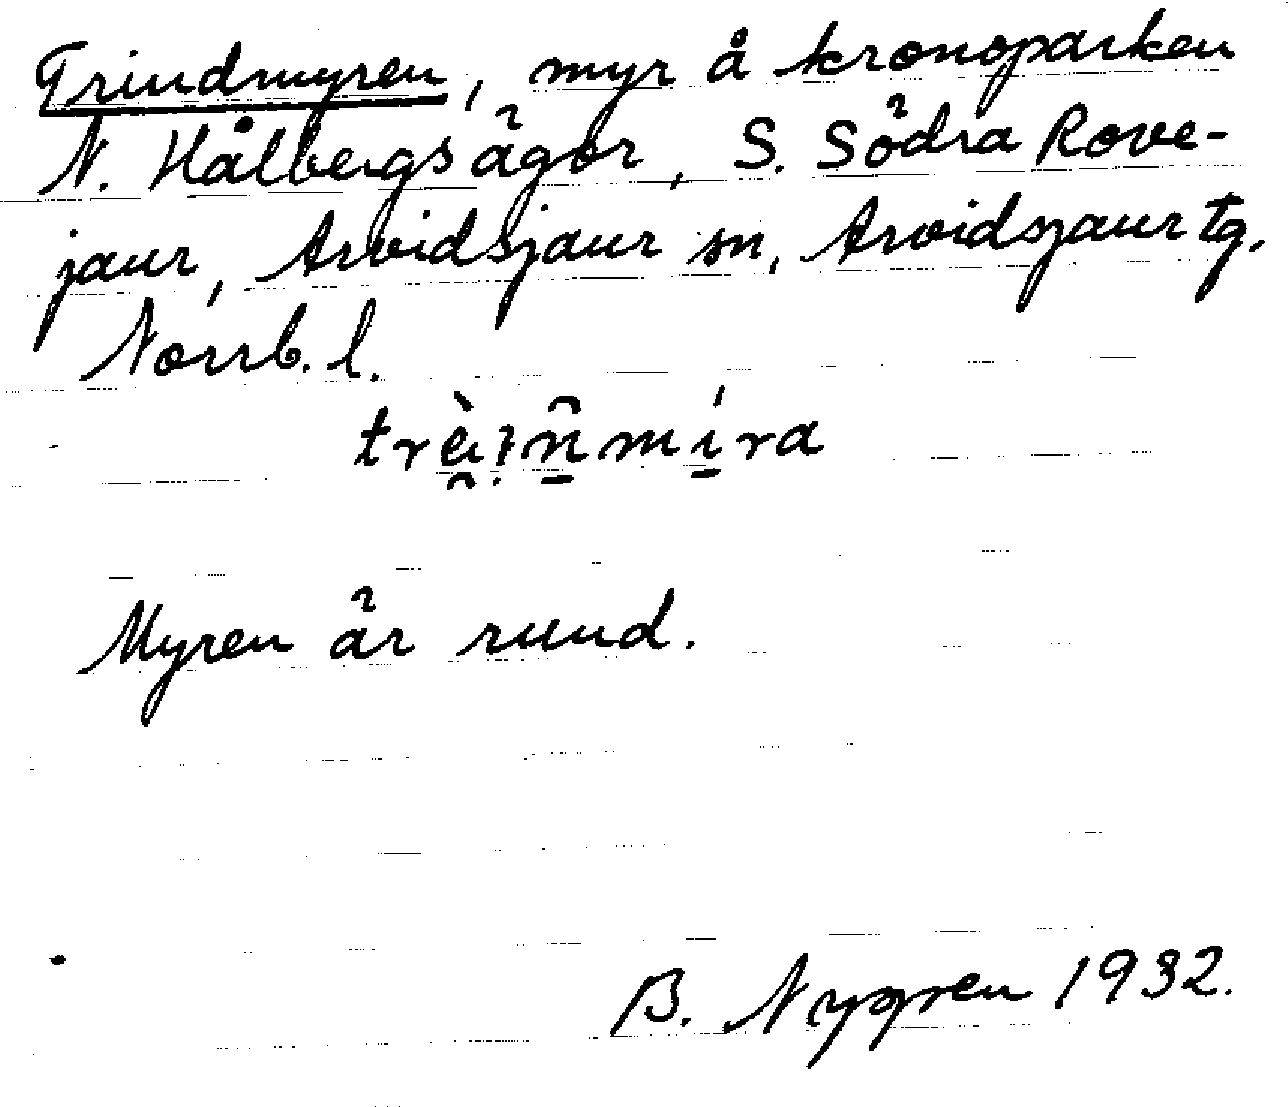 Trindmyren, myr å kronoparken
N. Hålbergsägor, S. Södra Rove-
jaur, Arvidsjaur sn, Arvidsjaur tg.
Norrb. l.
Myren är rund.
B. Nygren 1932.